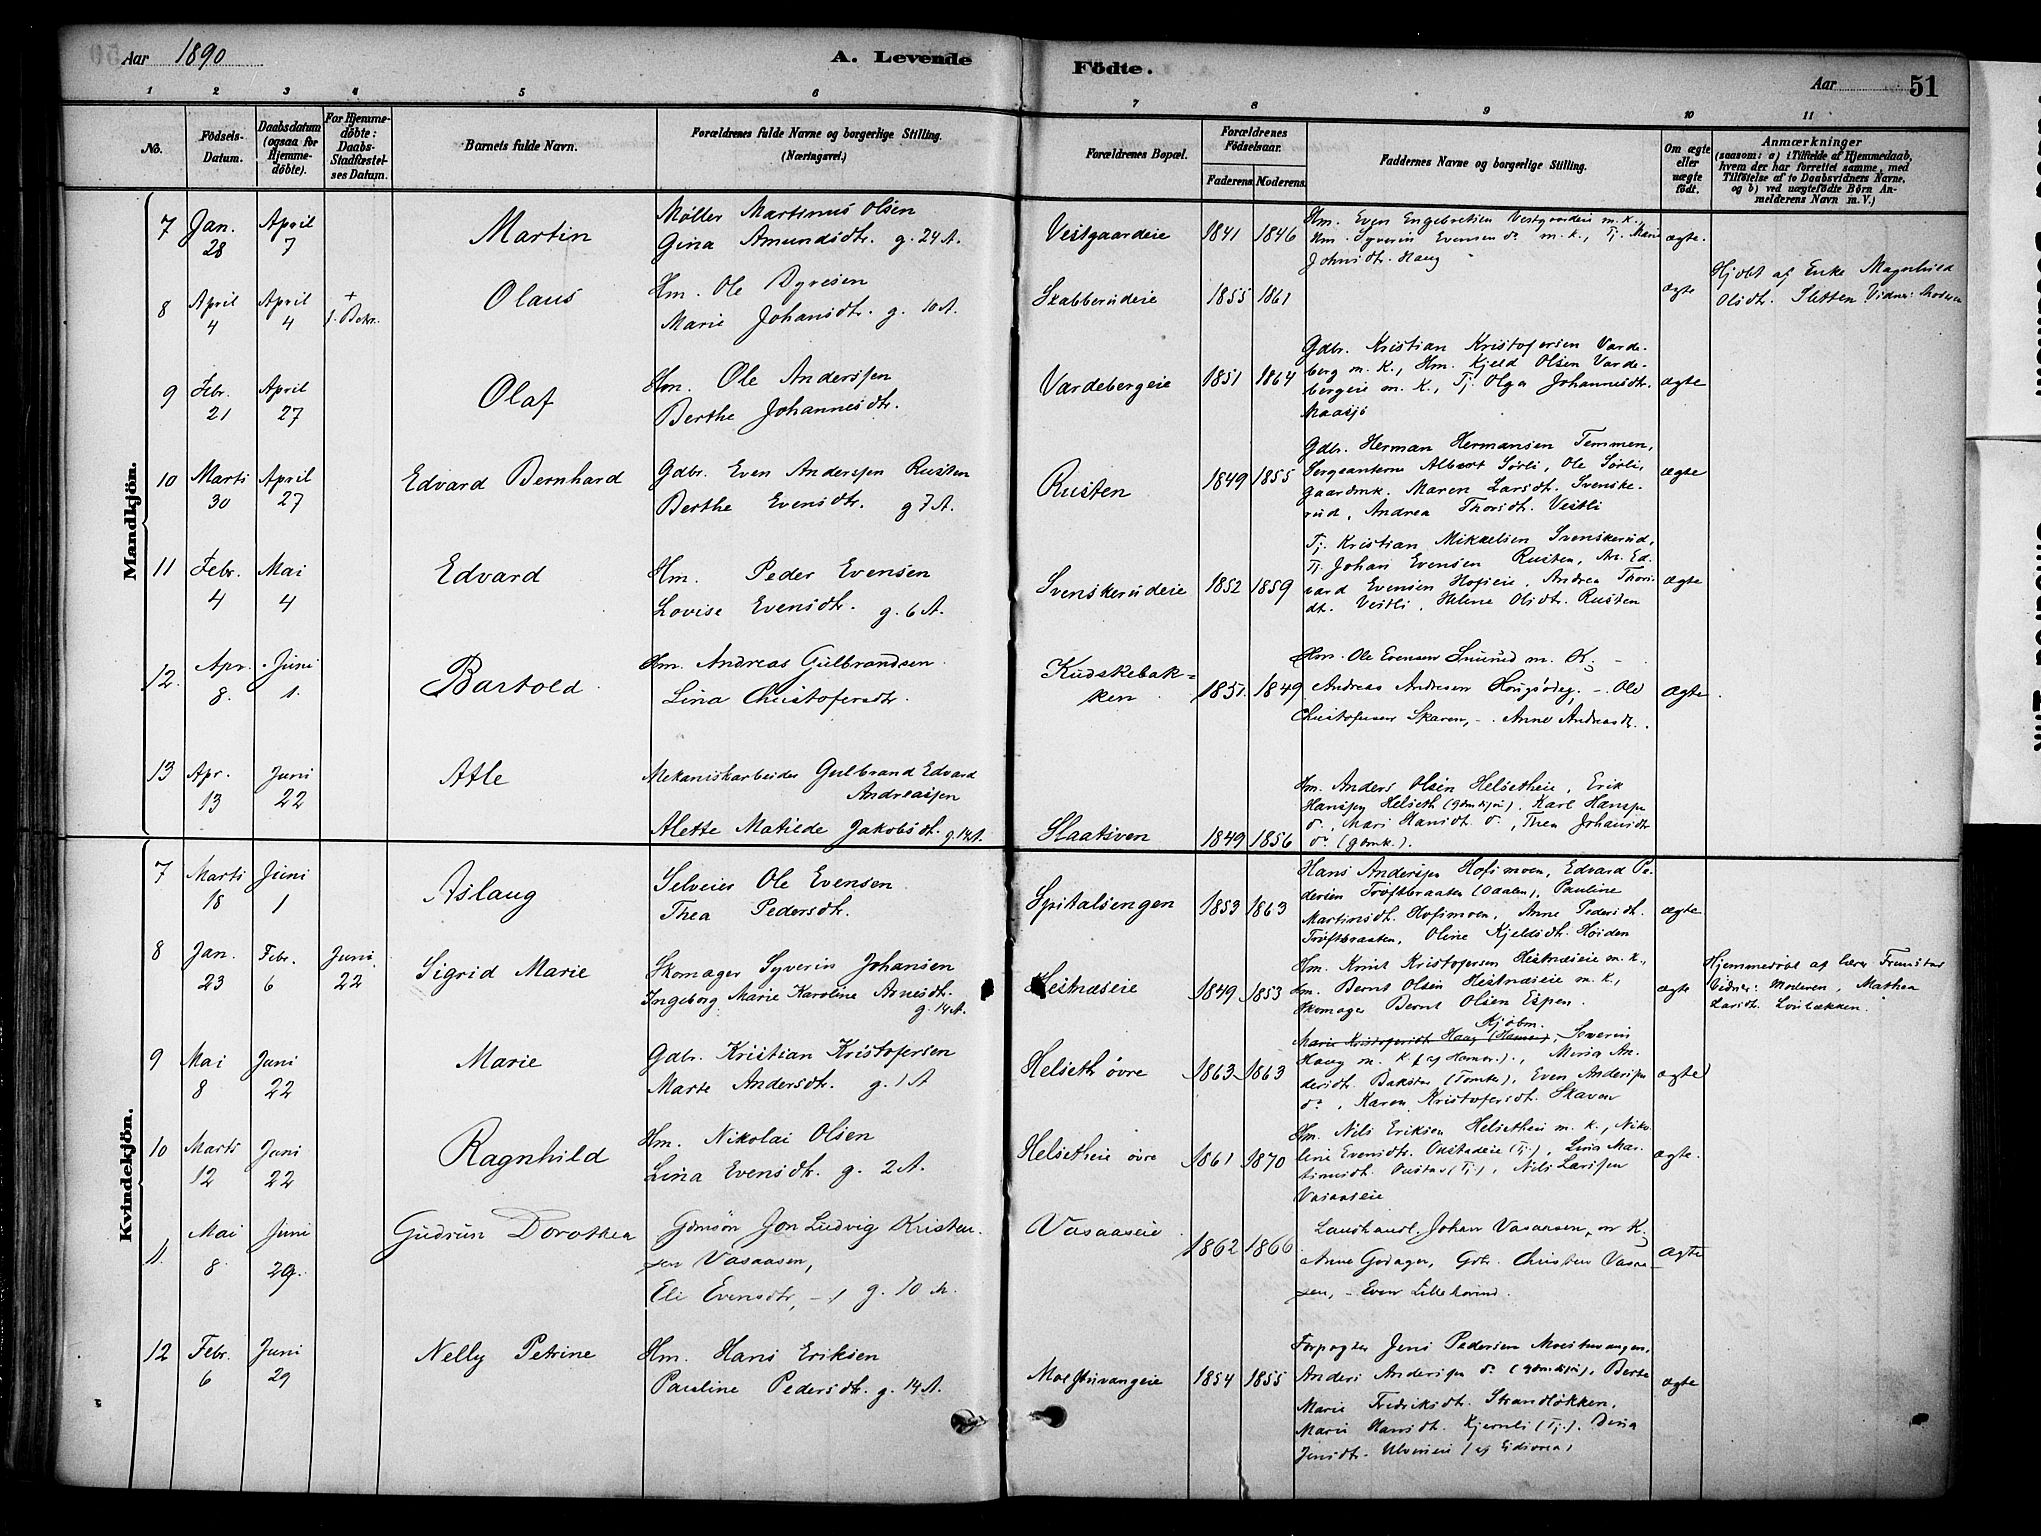 Aar 1890
A. Levende
Födte.
Aar
51
1 2 3 4 5 6 7 8 9 10 11
No.
Födsels-
Datum.
Daabsdatum
(ogsaa for
Hjemme-
döbte).
For Hjemme-
döbte:
Daabs-
Stadfæstel-
ses Datum.
Barnets fulde Navn.
Forældrenes fulde Navne og borgerlige Stilling.
(Næringsvei.)
Forældrenes Bopæl.
Forældrenes
Födselsaar.
Faderens. Moderens.
Faddernes Navne og borgerlige Stilling.
Om ægte
eller
uægte
födt.
Anmærkninger
(saasom: a) i Tilfælde af Hjemmedaab,
hvem der har forrettet samme, med
Tilföielse af to Daabsvidners Navne,
og b) ved uægtefödte Börn An-
melderens Navn m. V.)
Mandkjön.
7 Jan. 28 April 7 Martin
Møller Martinus Olsen
Gina Amundsdtr. g. 24 A.
Vestgaardeie 1841 1846
Hm. Even Engebretsen Vestgaardeie m. k.,
Hm. Syverin Evensen do m. k., Tj. Marie
Johnsdtr. Haug
ægte.
8 April 4 April 4 + f. Bekr. Olaus
Hm. Ole Dyresen
Marie Johansdtr. g. 10 A.
Skabberudeie 1855 1861
ægte
Hjdbt af Enke Magnhild
Olsdt. Sletten Vidner: Moderen
9 Febr. 21 April 27 Olaf
Hm. Ole Anderssen
Berthe Johannesdtr.
Vardebergeie 1851 1864
Gdbr. Kristian Kristofersen Varde-
berg m. k., Hm. Kjeld Olsen Varde-
bergeie m. k., Tj. Olga Johannesdtr.
Maasjö
ægte
10 Marts 30 April 27 Edvard Bernhard
Gdbr. Even Anderssen Rusten
Berthe Evensdtr. g 7 A.
Rusten 1849 1855
Gdbr. Herman Hermansen Temmen,
Sergeanterne Albert Sørli, Ole Sørli,
gaardmk. Maren Larsdt. Svenske-
rud, Andrea Thorsdt. Vestli
ægte
11 Febr. 4 Mai 4 Edvard
Hm. Peder Evensen
Lovise Evensdtr. g. 6 A.
Svenskerudeie 1852 1859
Tj. Kristian Mikkelsen Svenskerud,
Tj. Johan Evensen Rusten, Ar. Ed-
vard Evensen Hofseie, Andrea Thors-
dt. Vestli, Helene Olsdt. Rusten
ægte
12. Apr. 8. Juni 1. Bartold
Hm. Andreas Gulbrandsen
Lina Christofersdtr.
Kudskebak-
ken 1851. 1849
Hm. Ole Evensen m. K. -
Andreas Andresen - Ole
Christofersen Skaren, - Anne Andreasdt.
ægte
13 Apr. 13 Juni 22 Atle
Mekaniskarbeider Gulbrand Edvard
Andreassen
Alette Matilde Jakobsdt. g. 14 A.
Slaatsven 1849 1856
Hm. Anders Olsen Helsetheie, Erik
Hanssen Helseth (gdmdssøn), Karl Hanssen
do, Mari Hansdt do, Thea Johansdt
do (gdmk.).
Kvindekjön.
7 Marts 18 Juni 1 Aslaug
Selveier Ole Evensen
Thea Pedersdtr.
Spitalsengen 1853 1863
Hans Anderssen Hofsmoen, Edvard Pe-
dersen Trøftbraaten (Odalen), Pauline
Martinsdt. Hofsmoen, Anne Pedersdt.
Trøftbraaten, Oline Kjeldsdt. Høiden
ægte
8 Jan. 23 Febr. 6 Juni 22 Sigrid Marie
Skomager Syverin Johansen
Ingeborg Marie Karoline Arnesdt.
g. 14 A.
Hestnæseie 1849 1853
Hm. Knut Kristofersen Hestnæseie m. k.,
Hm. Bernt Olsen Hestnæseie m. k.,
Skomager Bernt Olsen Espen.
ægte
Hjemmedöbt af lærer Frenstad
Vidner: Moderen, Mathea
Larsdt. Lonbækken.
9 Mai 8 Juni 22 Marie
Gdbr. Kristian Kristofersen
Marte Andersdt. g. 1 A
Helseth øvre 1863 1863
Kjøbm.
Marie Kristofersdt Haug (Hamar), Severin
Haug m. k (af Hamar), Mina An-
dersdt. Bakstad (Tomter), Even Anderssen
do, Karen Kristofersdt. Skaven
ægte
10 Marts 12 Juni 22 Ragnhild
Hm. Nikolai Olsen
Lina Evensdt. g. 2 A.
Helsetheie øvre 1861 1870
Hm. Nils Eriksen Helsetheie m. k., Niko-
line Evensdt. Onstadeie (Tj), Lina Mar-
tinusdt. Onstad (Tj), Nils Larssen
Vasaaseie
ægte.
11. Mai 8. Juni 29. Gudrun Dorothea
Gdmsøn Jon Ludvig Kristen-
sen Vasaasen,
Eli Evensdtr, - g. 10 M.
Vasaaseie 1862 1866
Landhandl. Johan Vasaasen, m K,
Anne Godager, Gbr. Christen Vasaa-
sen, - Even Lillehovind.
ægte
12 Febr. 6 Juni 29 Nelly Petrine
Hm. Hans Eriksen
Pauline Pedersdtr. g. 14 A.
Moestuvangeie 1854 1855
Forpagter Jens Pedersen Moestuvangen,
Anders Anderssen do (gdmdssøn), Berte
Marie Fredriksdt. Strandløkken,
Marie Hansdt. Kjernli (Tj.). Dina
Jensdt. Ulvenseie (af Eidsvold)
ægte